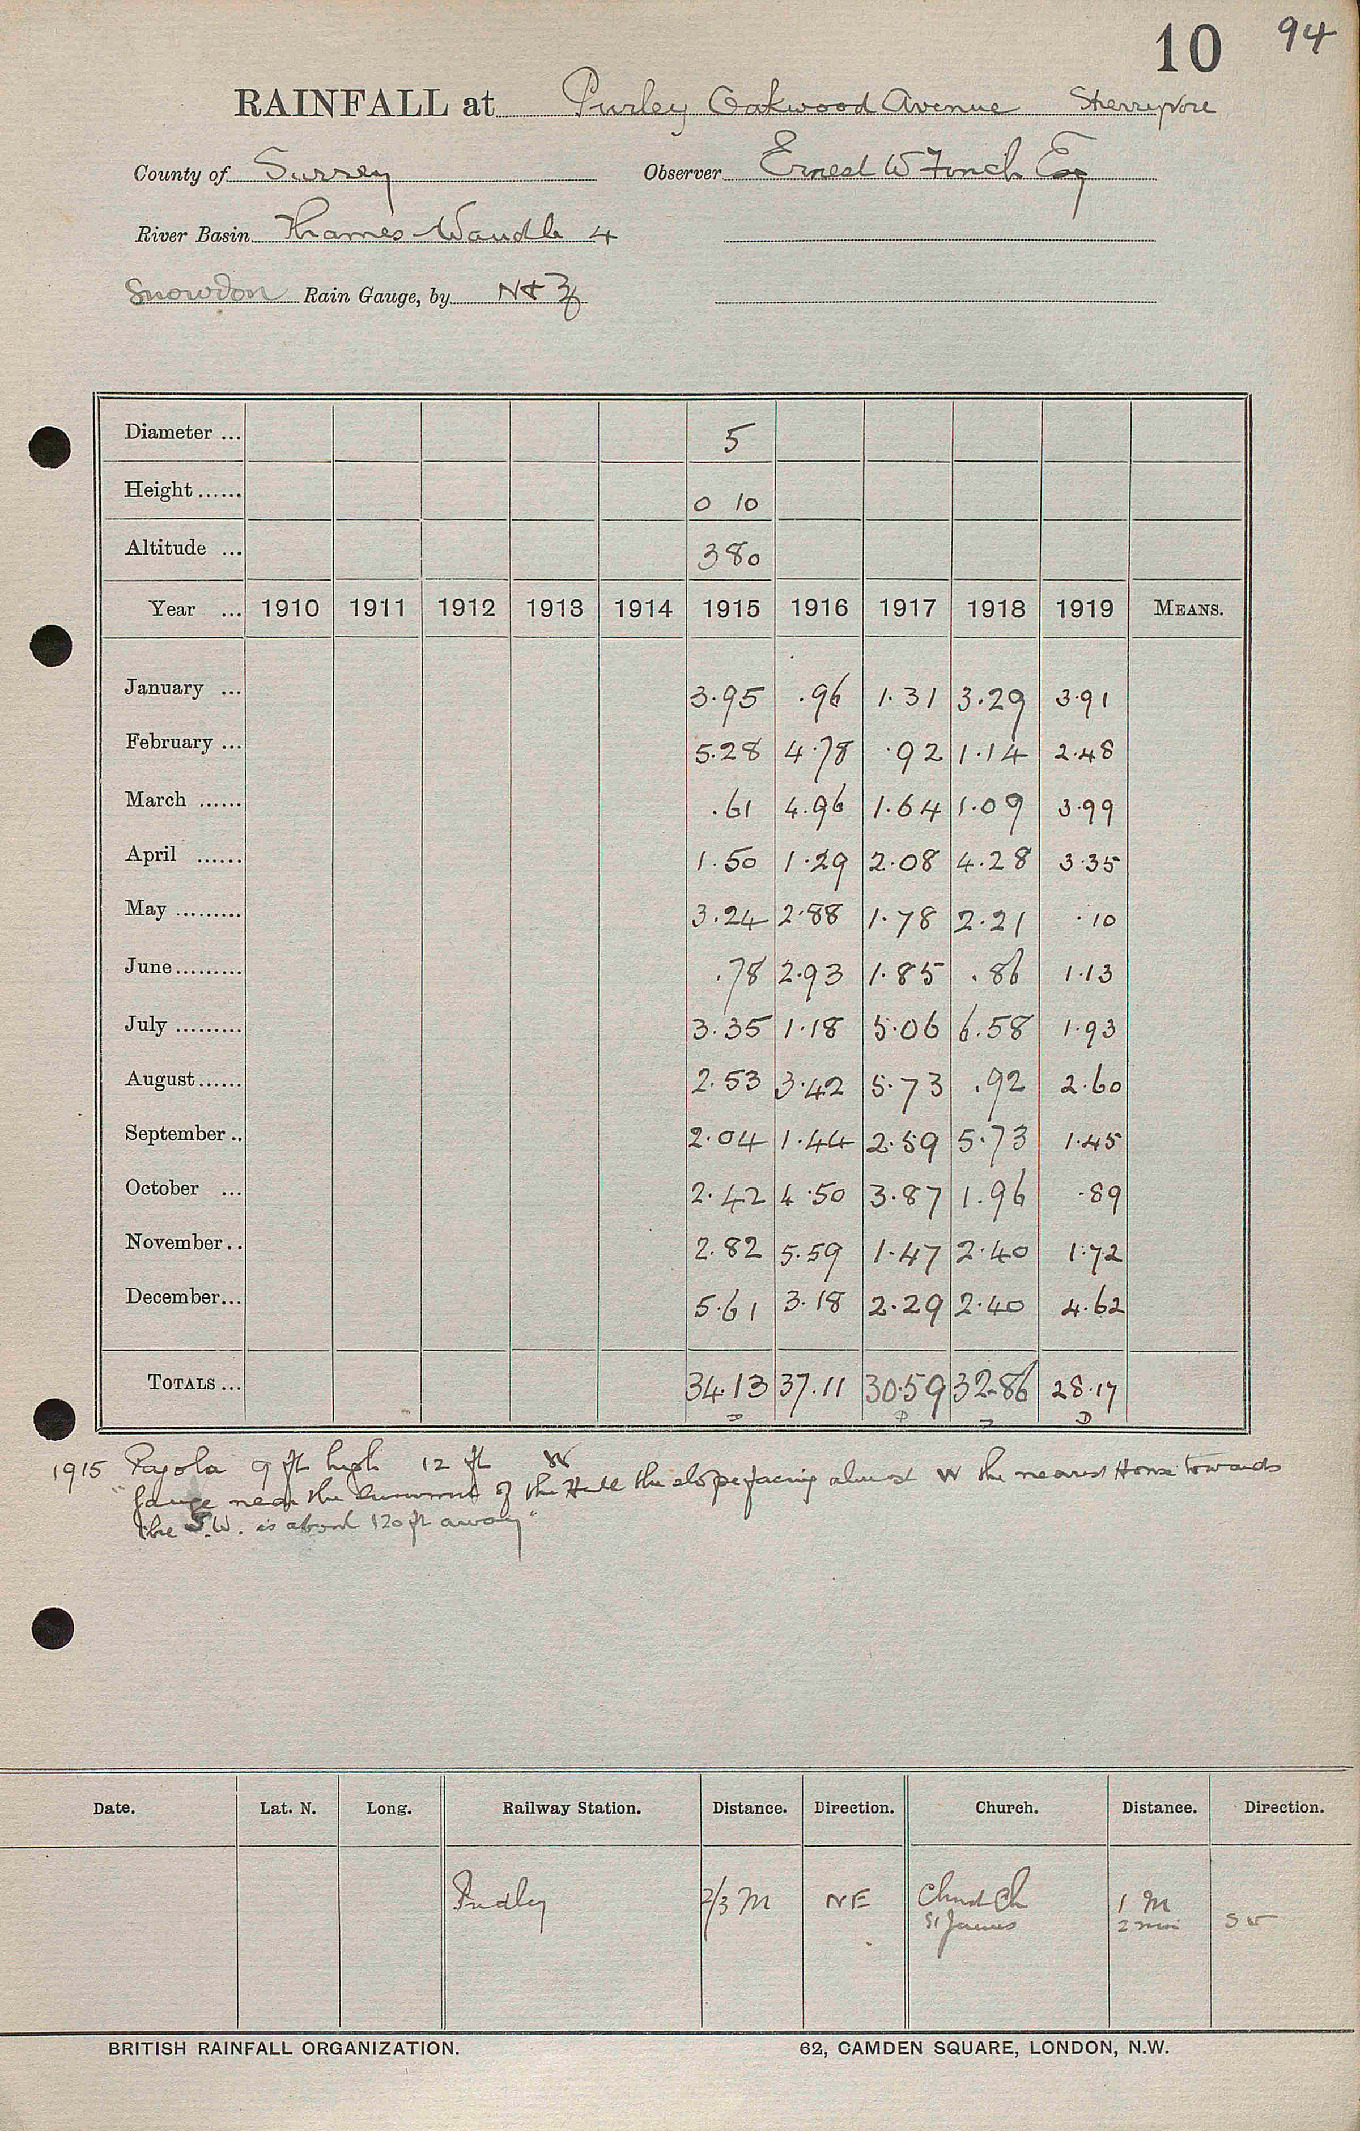 10 94
RAINFALL at Purley Oakwood Avenue
County of Surrey Observer Ernest W Finch Esq
River Basin Thames Wandle 4
Snowdon Rain Gauge, by N & Z
Diameter ... 5
Height...... 0 10
Altitude ... 380
Year ... 1910 1911 1912 1913 1914 1915 1916 1917 1918 1919 MEANS.
January ... 3.95 .96 1.31 3.29 3.91
February ... 5.28 4.78 .92 1.14 2.48
March ...... .61 4.96 1.64 1.09 3.99
April ...... 1.50 1.29 2.08 4.28 3.35
May ......... 3.24 2.88 1.78 2.21 .10
June......... .78 2.93 1.85 .86 1.13
July ......... 3.35 1.18 5.06 6.58 1.93
August...... 2.53 3.42 5.73 .92 2.60
September .. 2.04 1.44 2.59 5.73 1.45
October ... 2.42 4.50 3.87 1.96 .89
November.. 2.82 5.59 1.47 2.40 1.72
December... 5.61 3.18 2.29 2.40 4.62
TOTALS ... 34.13 37.11 30.59 32.86 28.17
1915 Pagola 9 ft high 12 ft W
"Gauge near the summit of the Hill the slope facing almost W the nearest House towards
the S.W. is about 120 ft away"
Date. Lat. N. Long. Railway Station. Distance. Direction. Church. Distance. Direction.
Purley 2/3 M NE Christ Ch 1 M
St James 2 min SW
BRITISH RAINFALL ORGANIZATION. 62, CAMDEN SQUARE, LONDON, N.W.